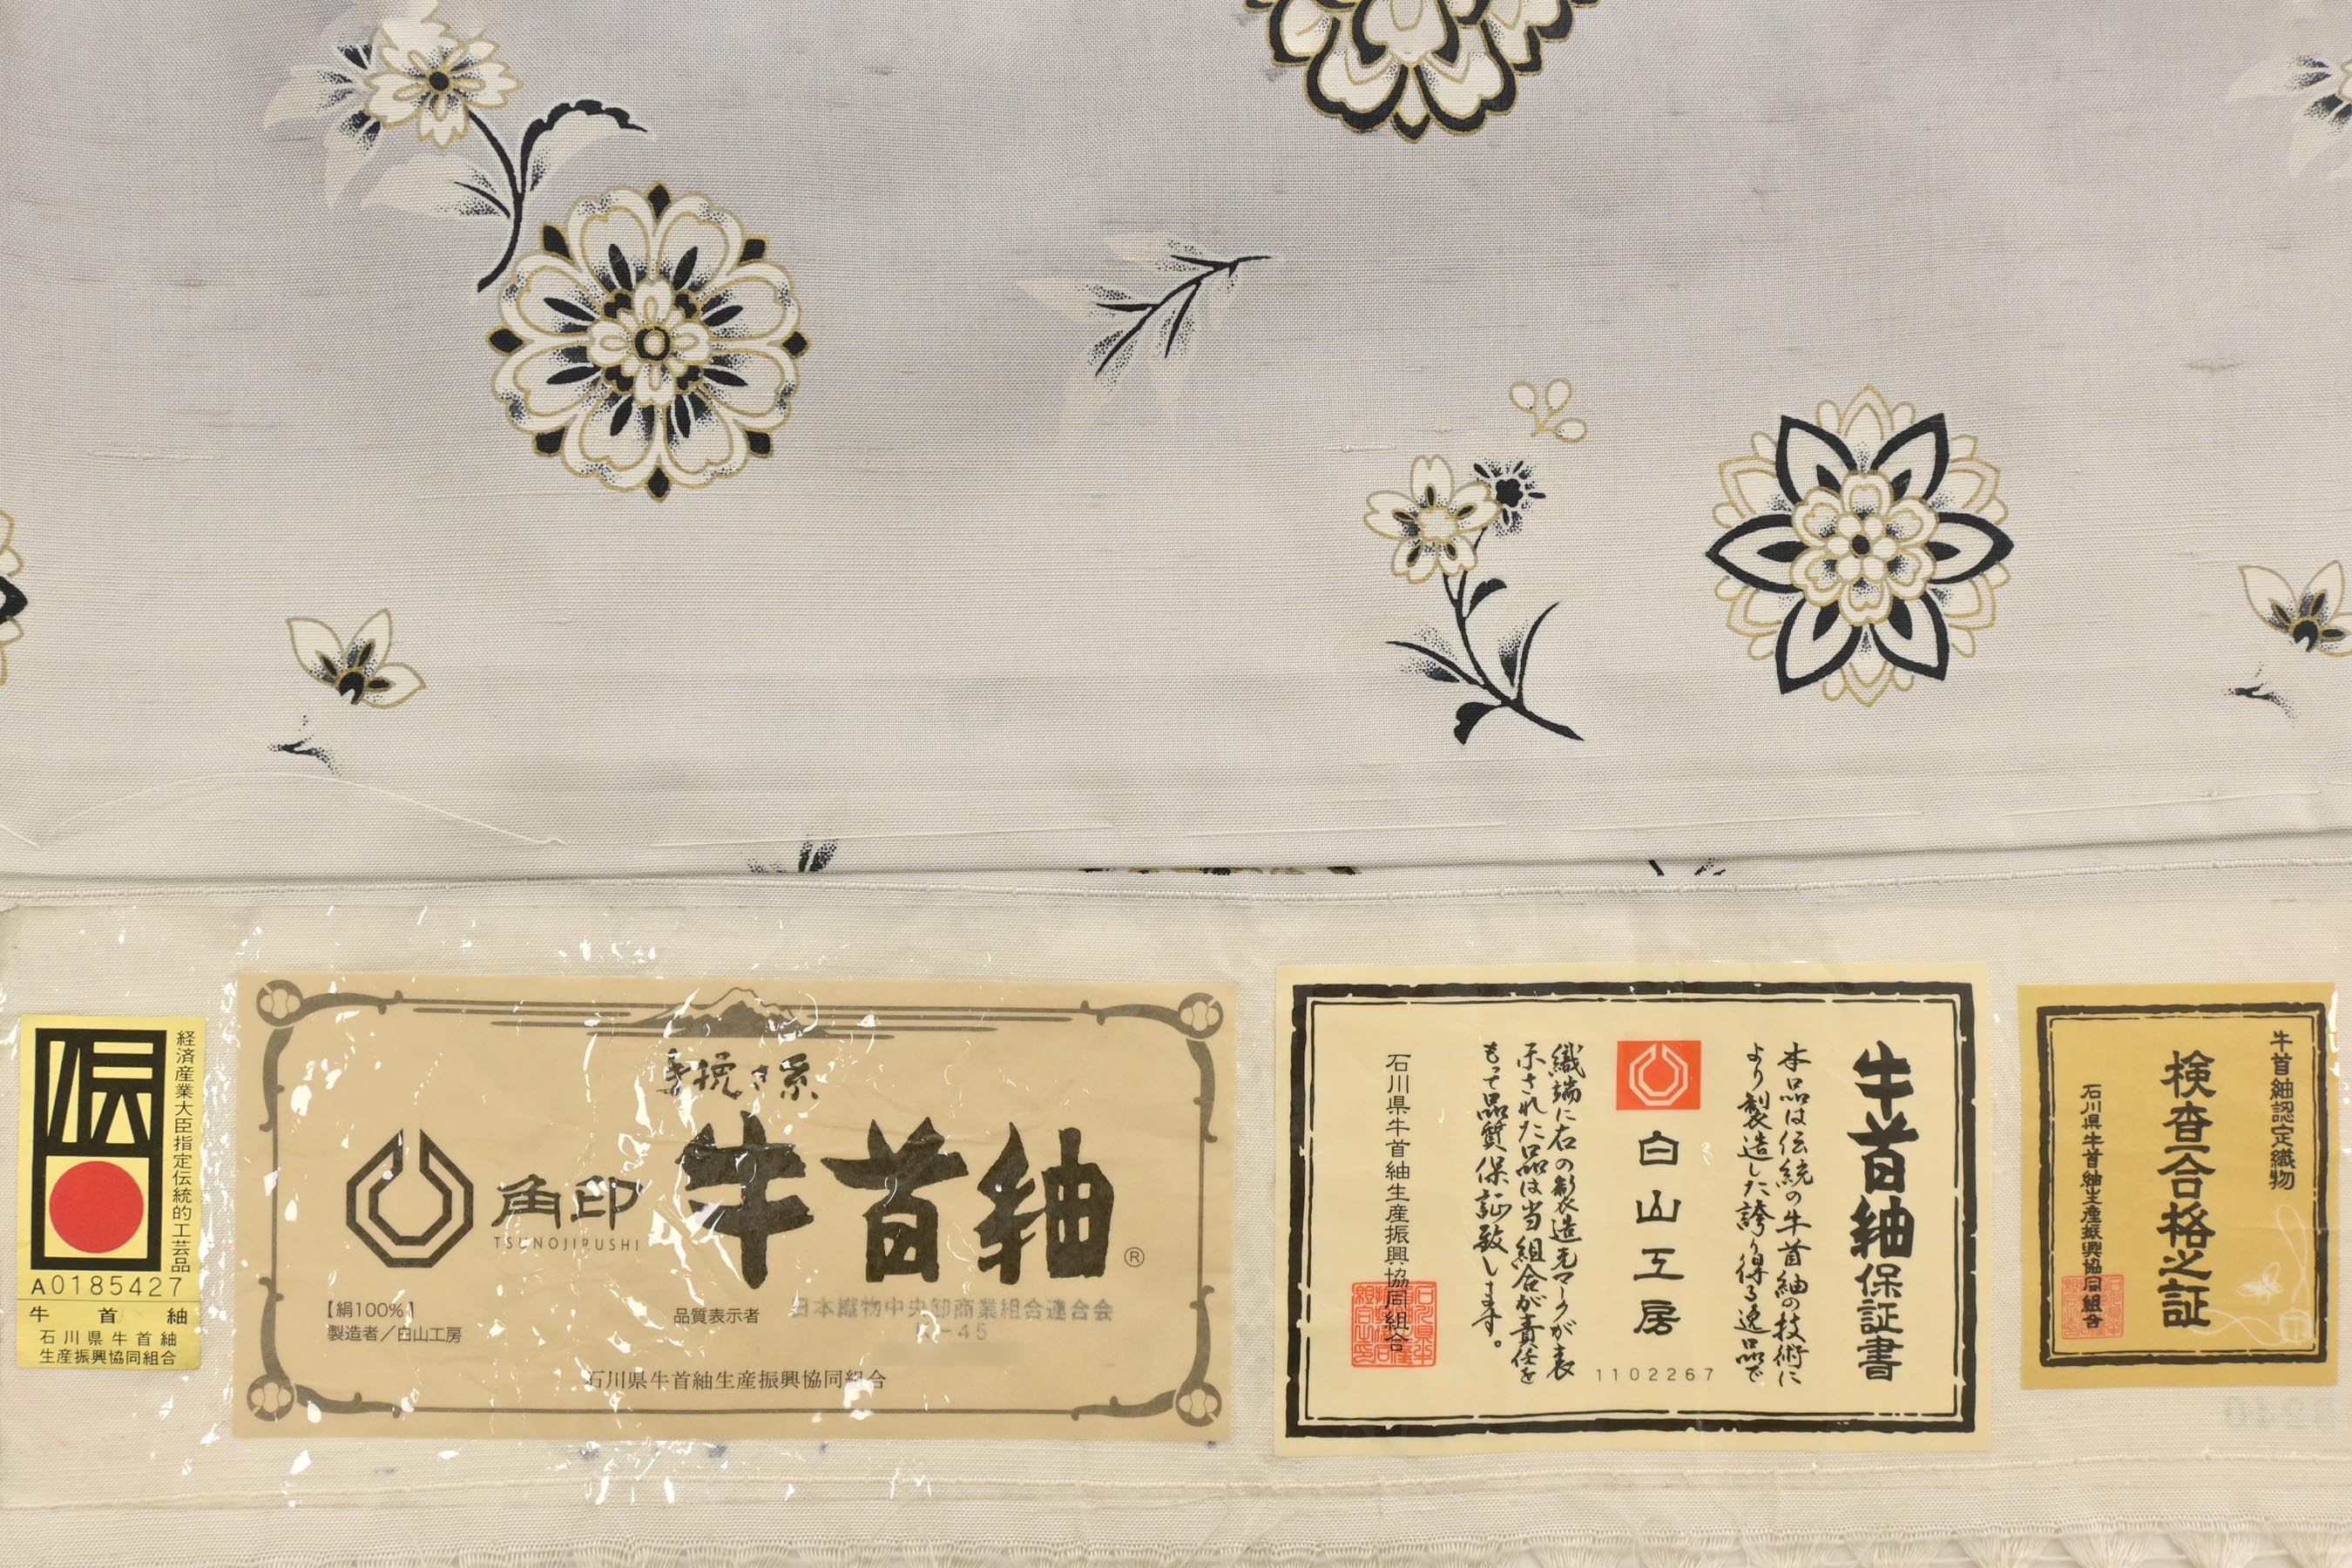 伝
経済産業大臣指定伝統的工芸品
A0185427
牛首紬
石川県牛首紬
生産振興協同組合
手挽き糸
角印
TSUNOJIRUSHI
牛首紬
®
【絹100%】
製造者/白山工房
品質表示者
日本織物中央卸商業組合連合会
石川県牛首紬生産振興協同組合
牛首紬保証書
本品は伝統の牛首紬の技術に
より製造した誇り得る逸品で
白山工房
1102267
織端に右の製造元マークが表
示された品は当組合が責任を
もって品質保証致します。
石川県牛首紬生産振興協同組合
牛首紬認定織物
検査合格之証
石川県牛首紬生産振興協同組合